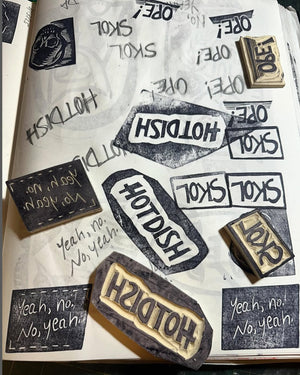 OPE!
No,
OPE!
SKOL
OPE!
SKOL
OPE!
OPE!
OPE!
HOTDISH
OPE!
HOTDISH
SKOL
HOTDISH
Yeah, no.
No, yeah.
SKOL
SKOL
HOTDISH
SKOL
Yeah, no.
No, yeah.
HOTDISH
Yeah, no.
No, yeah.
Yeah, no.
No, yeah.